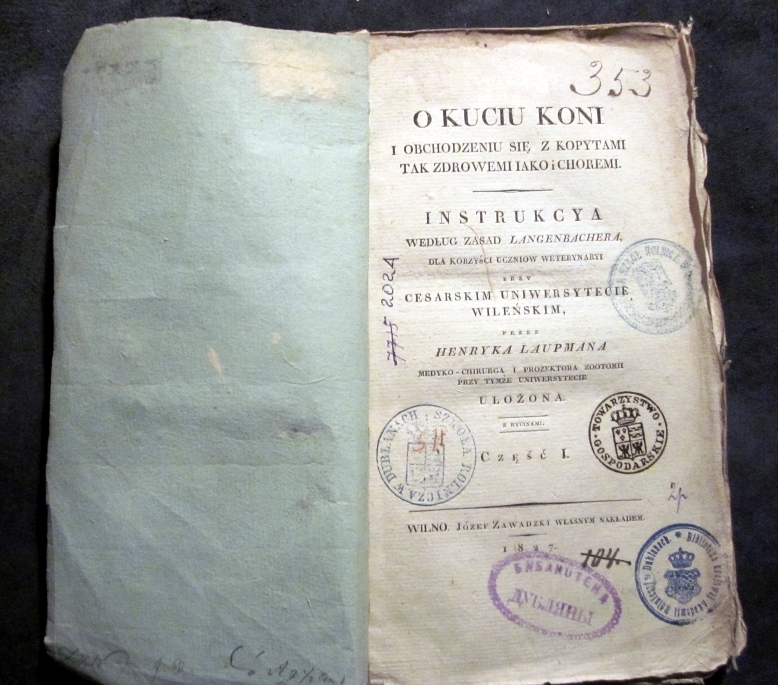 353
O KUCIU KONI
I OBCHODZENIU SIĘ Z KOPYTAMI
TAK ZDROWEMI IAKO i CHOREMI.
INSTRUKCYA
WEDŁUG ZASAD LANGENBACHERA,
DLA KORZYŚCI UCZNIOW WETERYNARYI
PRZY
CESARSKIM UNIWERSYTECIE
WILEŃSKIM,
PRZEZ
HENRYKA LAUPMANA
MEDYKO-CHIRURGA I PROZEKTORA ZOOTOMII
PRZY TYMŻE UNIWERSYTECIE
UŁOŻONA.
Z RYCINAMI.
CZĘŚĆ I.
WILNO. JÓZEF ZAWADZKI WŁASNYM NAKŁADEM.
1827.
7715 2024
SZKOŁA ROLNICZA W DUBLANACH
511
TOWARZYSTWO
GOSPODARSKIE
2p
104.
БІБЛІОТЕКА
ДУБЛЯНЫ
Biblioteka Krajowej Akademii Rolniczej w Dublanach.